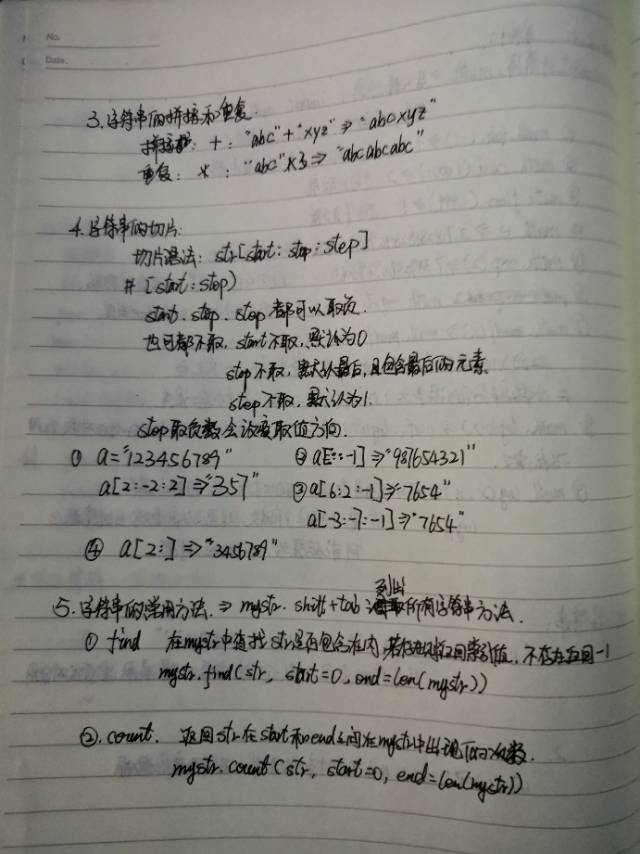 No.
Date.
3.字符串的拼接和重复.
拼接: +: "abc"+"xyz" => "abcxyz"
重复: * : "abc"*3 => "abcabcabc"
4.字符串的切片:
切片语法: str[start: stop: step]
# [start: stop)
start、stop、step 都可以取负.
也可都不取, start不取, 默认为0
stop不取, 默认最后, 且包含最后的元素.
step不取, 默认为1.
step取负数会改变取值方向.
① a="123456789" ② a[::-1]=>"987654321"
a[2:-2:2]=>"357" ③ a[6:2:-1]=>"7654"
a[-3:-7:-1]=>"7654"
④ a[2:] => "3456789"
5.字符串的常用方法. => mystr. shift+tab 列出所有字符串方法.
① find 在mystr中查找str是否包含在内, 若存在返回索引值, 不存在返回-1
mystr.find(str, start=0, end=len(mystr))
②. count. 返回str在start和end之间在mystr中出现的次数.
mystr.count(str, start=0, end=len(mystr))